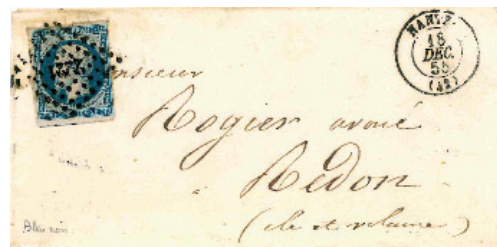 NANTES
18
DEC.
55
(42)
Monsieur
Rogier avoué
Redon
(ile et vilaine)
Bleu noir